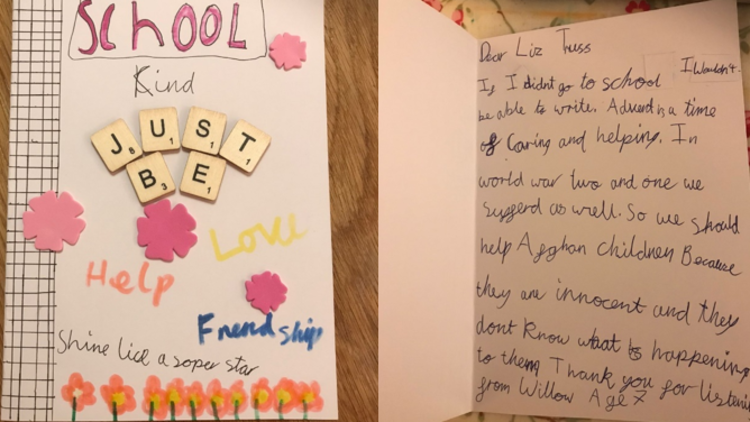 SCHOOL
Kind
JUST
BE
Love
Help
Frendship
Shine lick a soper star
Dear Liz Truss
If I didnt go to school I Wouldn't
be able to write. Advent is a time
of Caring and helping. In
world war two and one we
sufferd as well. So we should
help Afghan children Because
they are innocent and they
dont know what is happening
to them Thank you for listenin
from Willow Age 7